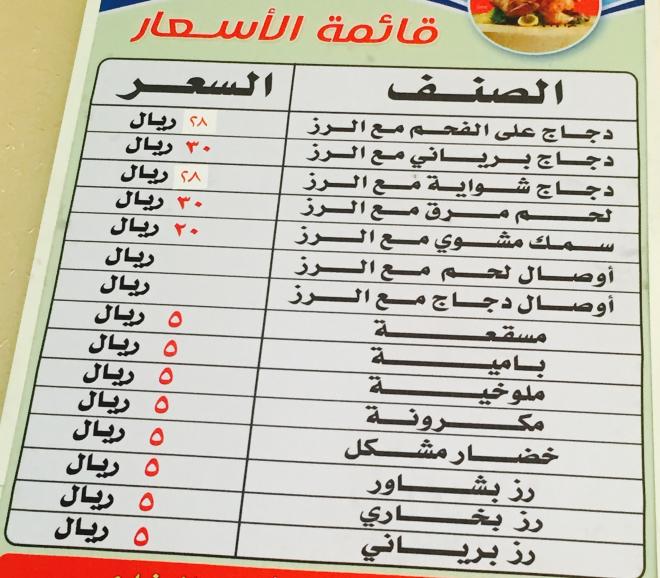 قائمة الأسعار
الصنف السعر
دجاج على الفحم مع الرز ٢٨ ريال
دجاج برياني مع الرز ٣٠ ريال
دجاج شواية مع الرز ٢٨ ريال
لحم مرق مع الرز ٣٠ ريال
سمك مشوي مع الرز ٢٠ ريال
أوصال لحم مع الرز ريال
أوصال دجاج مع الرز ريال
مسقعة ٥ ريال
بامية ٥ ريال
ملوخية ٥ ريال
مكرونة ٥ ريال
خضار مشكل ٥ ريال
رز بشاور ٥ ريال
رز بخاري ٥ ريال
رز برياني ٥ ريال